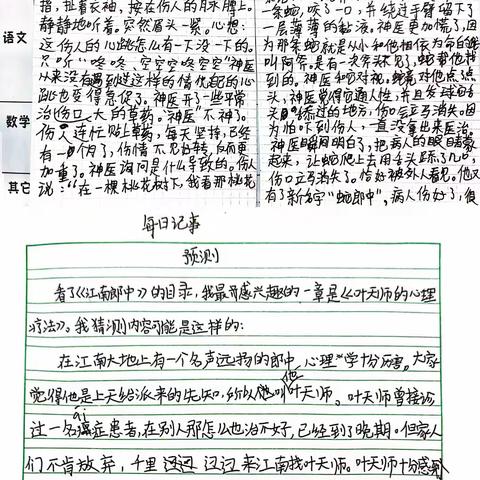 语文
数学
其它
指，扯着衣袖，按在伤人的月永脾上。
静静地听着。突然眉头一紧。心想：
这伤人的心跳怎么有一下没一下的。
只听“咚咚、空空空咚空空”神医
从来没有遇到过这样的情况配的心
跳也变得急促了。神医开了一些平常
治伤口大的草药。神医“不神”了。
伤人连忙贴上草药，每天坚持，已经
有一个月了，伤情不见好转，反而更
加重了。神医询问是什么导致的。伤人
说：“在一棵桃花树下，我看那桃花
一条蛇，咬了一口，并绕过手臂留下了
一层薄薄的黏液。神医更加慌了，因
为那条蛇就是从小和他相依为命的
叫阿奈。是有一次
到的。神医和它对视，点点
头，神医觉得它通人性，并且发现
过的地方，伤口会立马消失。因
为怕吓到伤人，一直没拿出来医治。
神医瞬间明白了，把病人的眼睛蒙
起来，让蛇爬上去用舌头舔了几口，
伤口立马消失了。恰好被外人看见。他又
有了新名字“蛇郎中”，病人伤好了，很
每日记事
预测
看了《江南郎中》的目录，我最感兴趣的一章是《叶天师的心理
疗法》。我猜测内容可能是这样的：
在江南大地上有一个名声远扬的郎中，心理学十分厉害。大家
觉得他是上天给派来的先知，所以他叫叶天师。叶天师曾接诊
过一名癌症患者，在别人那怎么也治不好，已经到了晚期。但家人
们不肯放弃，千里迢迢来江南找叶天师。叶天师十分感